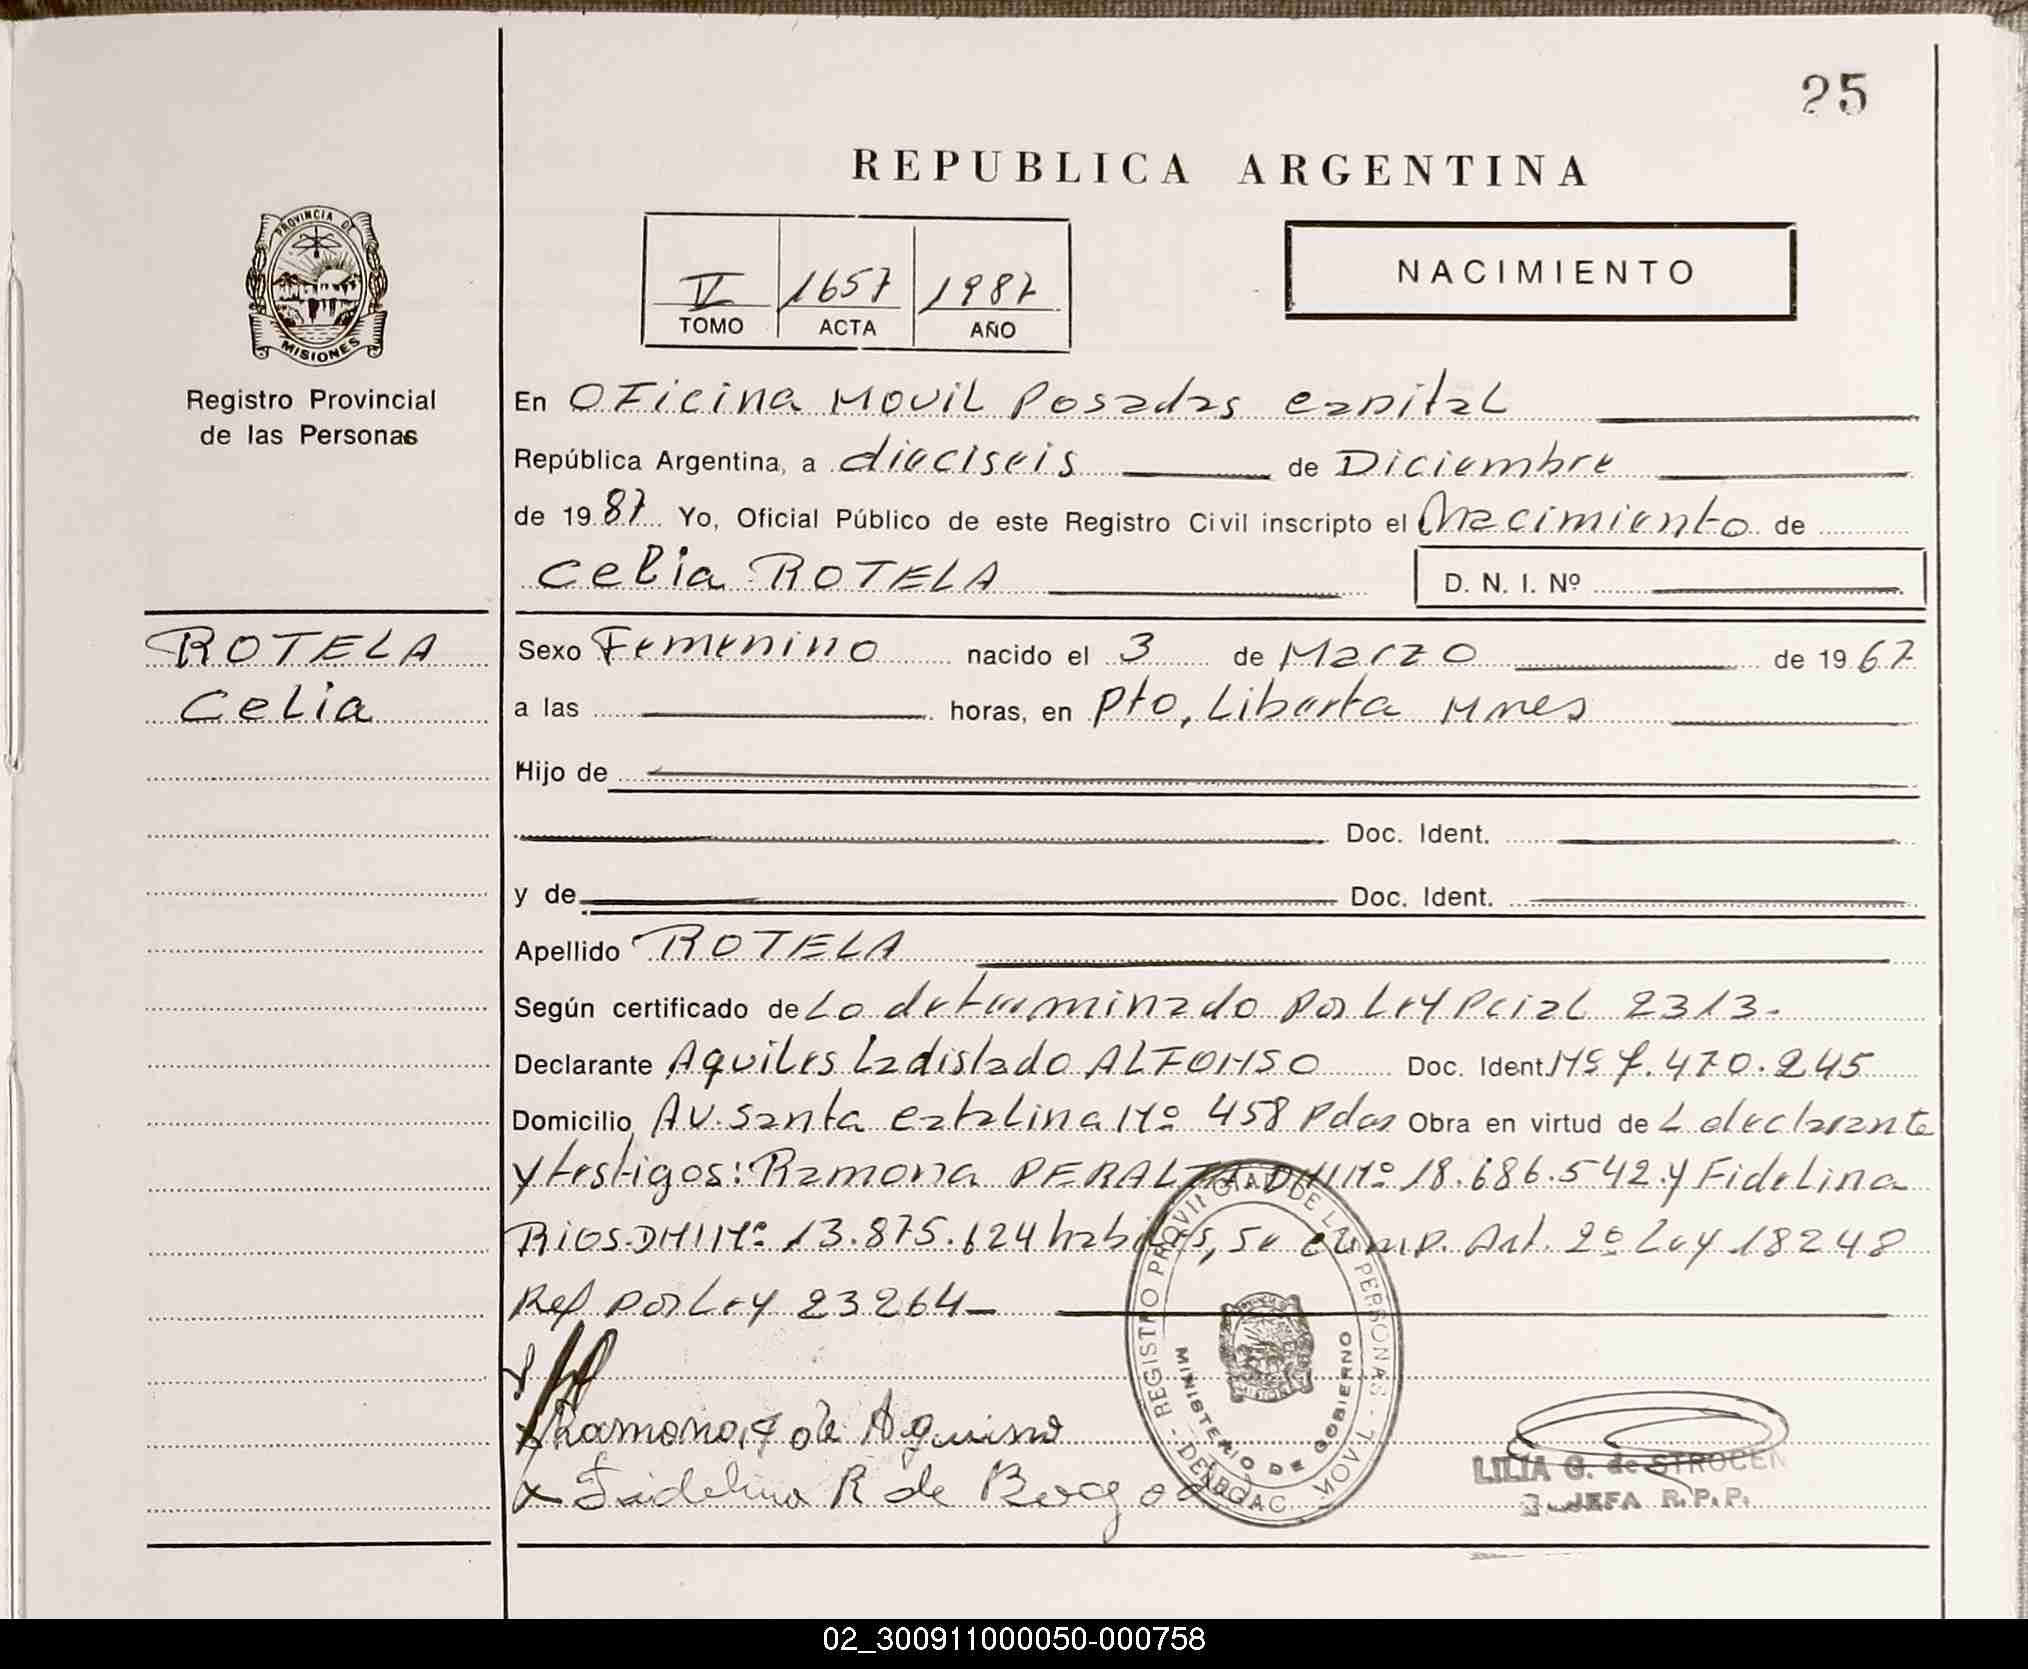 25
REPUBLICA ARGENTINA
PROVINCIA DE
MISIONES
Registro Provincial
de las Personas
V 1657 1987
TOMO ACTA AÑO
NACIMIENTO
En Oficina Movil Posadas capital
República Argentina, a dieciseis de Diciembre
de 19 87 Yo, Oficial Público de este Registro Civil inscripto el Nacimiento de
Celia ROTELA D. N. I. Nº
ROTELA
Celia
Sexo Femenino nacido el 3 de Marzo de 19 67
a las horas, en Pto, Liberta Mnes
Hijo de
Doc. Ident.
y de Doc. Ident.
Apellido ROTELA
Según certificado de Lo determinado por Ley Pcial 2313.
Declarante Aquiles Ladislado ALFONSO Doc. Ident. Nº 7.470.245
Domicilio Av. Santa Catalina Nº 458 Pdas Obra en virtud de L declarante
y testigos: Ramona PERALTA. DNI Nº 18.686.542 y Fidelina
Rios. DNI Nº 13.875.624 habiles, se cump. Art. 2º Ley 18248
Ref por Ley 23264
x Ramona, de Aquino
x Fidelina R de
REGISTRO PROVINCIAL DE LAS PERSONAS
MINISTERIO DE GOBIERNO
MOVIL
LILIA G. de STROCEN
JEFA R.P.P.
02_300911000050-000758